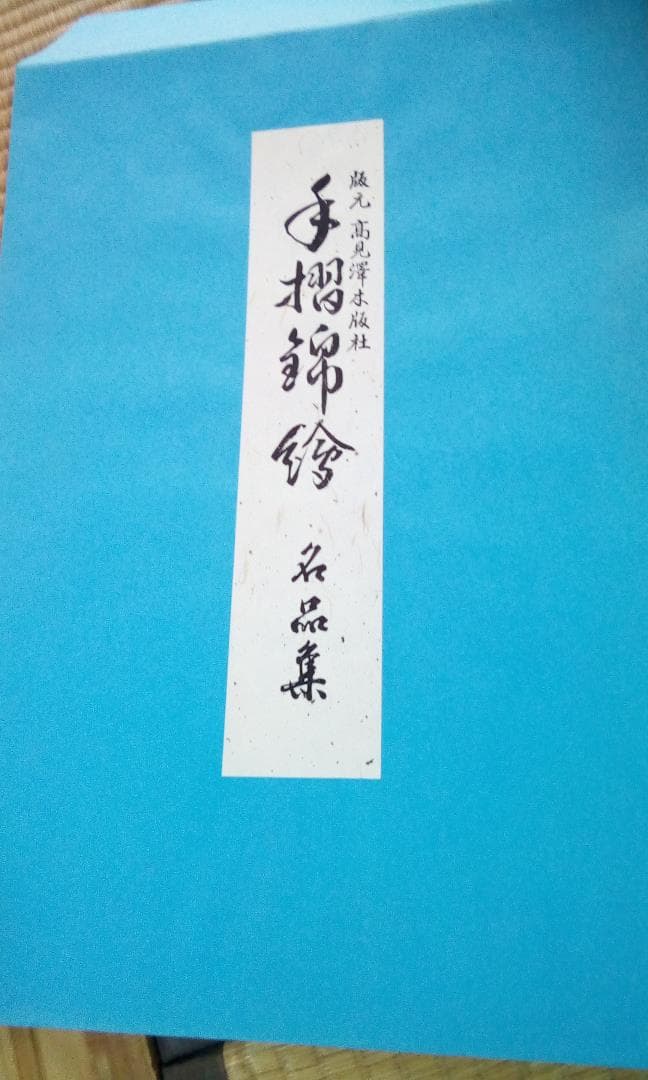 版元 高見澤木版社
手摺錦繪 名品集